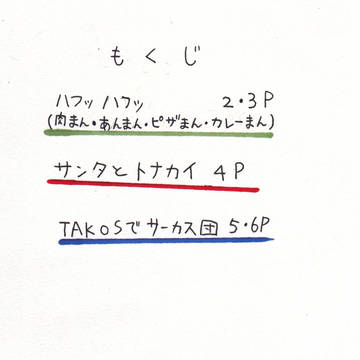 もくじ
ハフッハフッ 2・3P
(肉まん・あんまん・ピザまん・カレーまん)
サンタとトナカイ 4P
TAKOSでサーカス団 5・6P